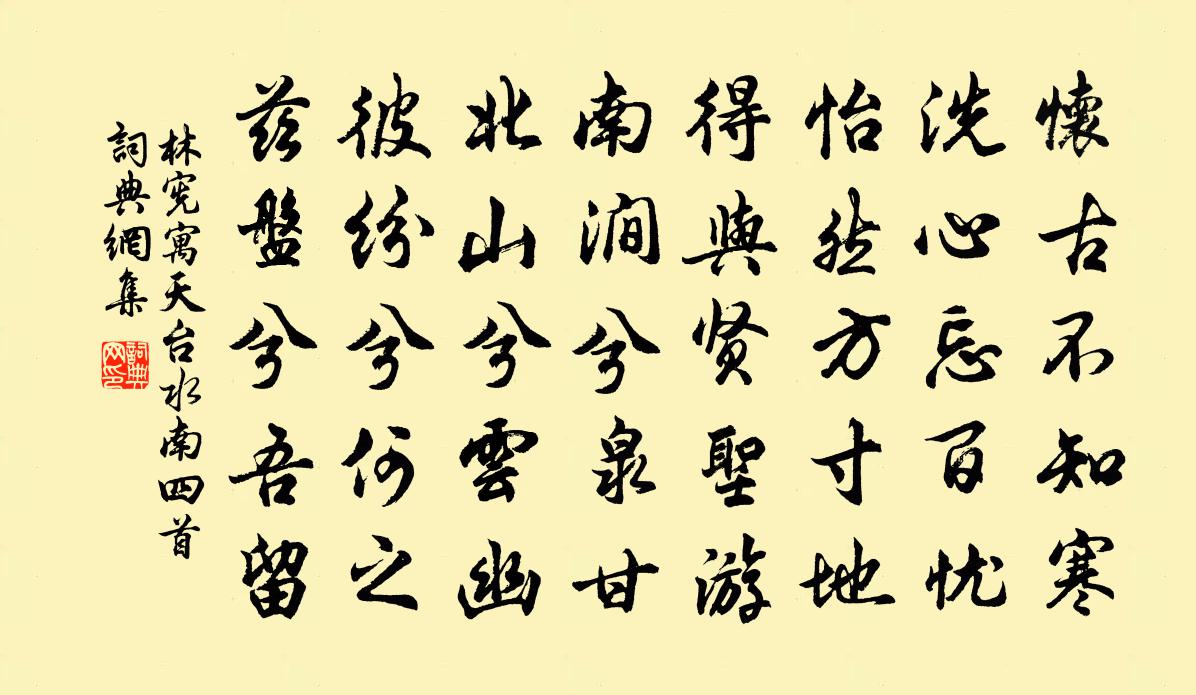 懷古不知寒
洗心忘百忧
怡然方寸地
得與贤聖游
南澗兮泉甘
北山兮雲幽
彼紛兮何之
茲盤兮吾留
林憲寓天台水南四首
詞典網集
詞典網印